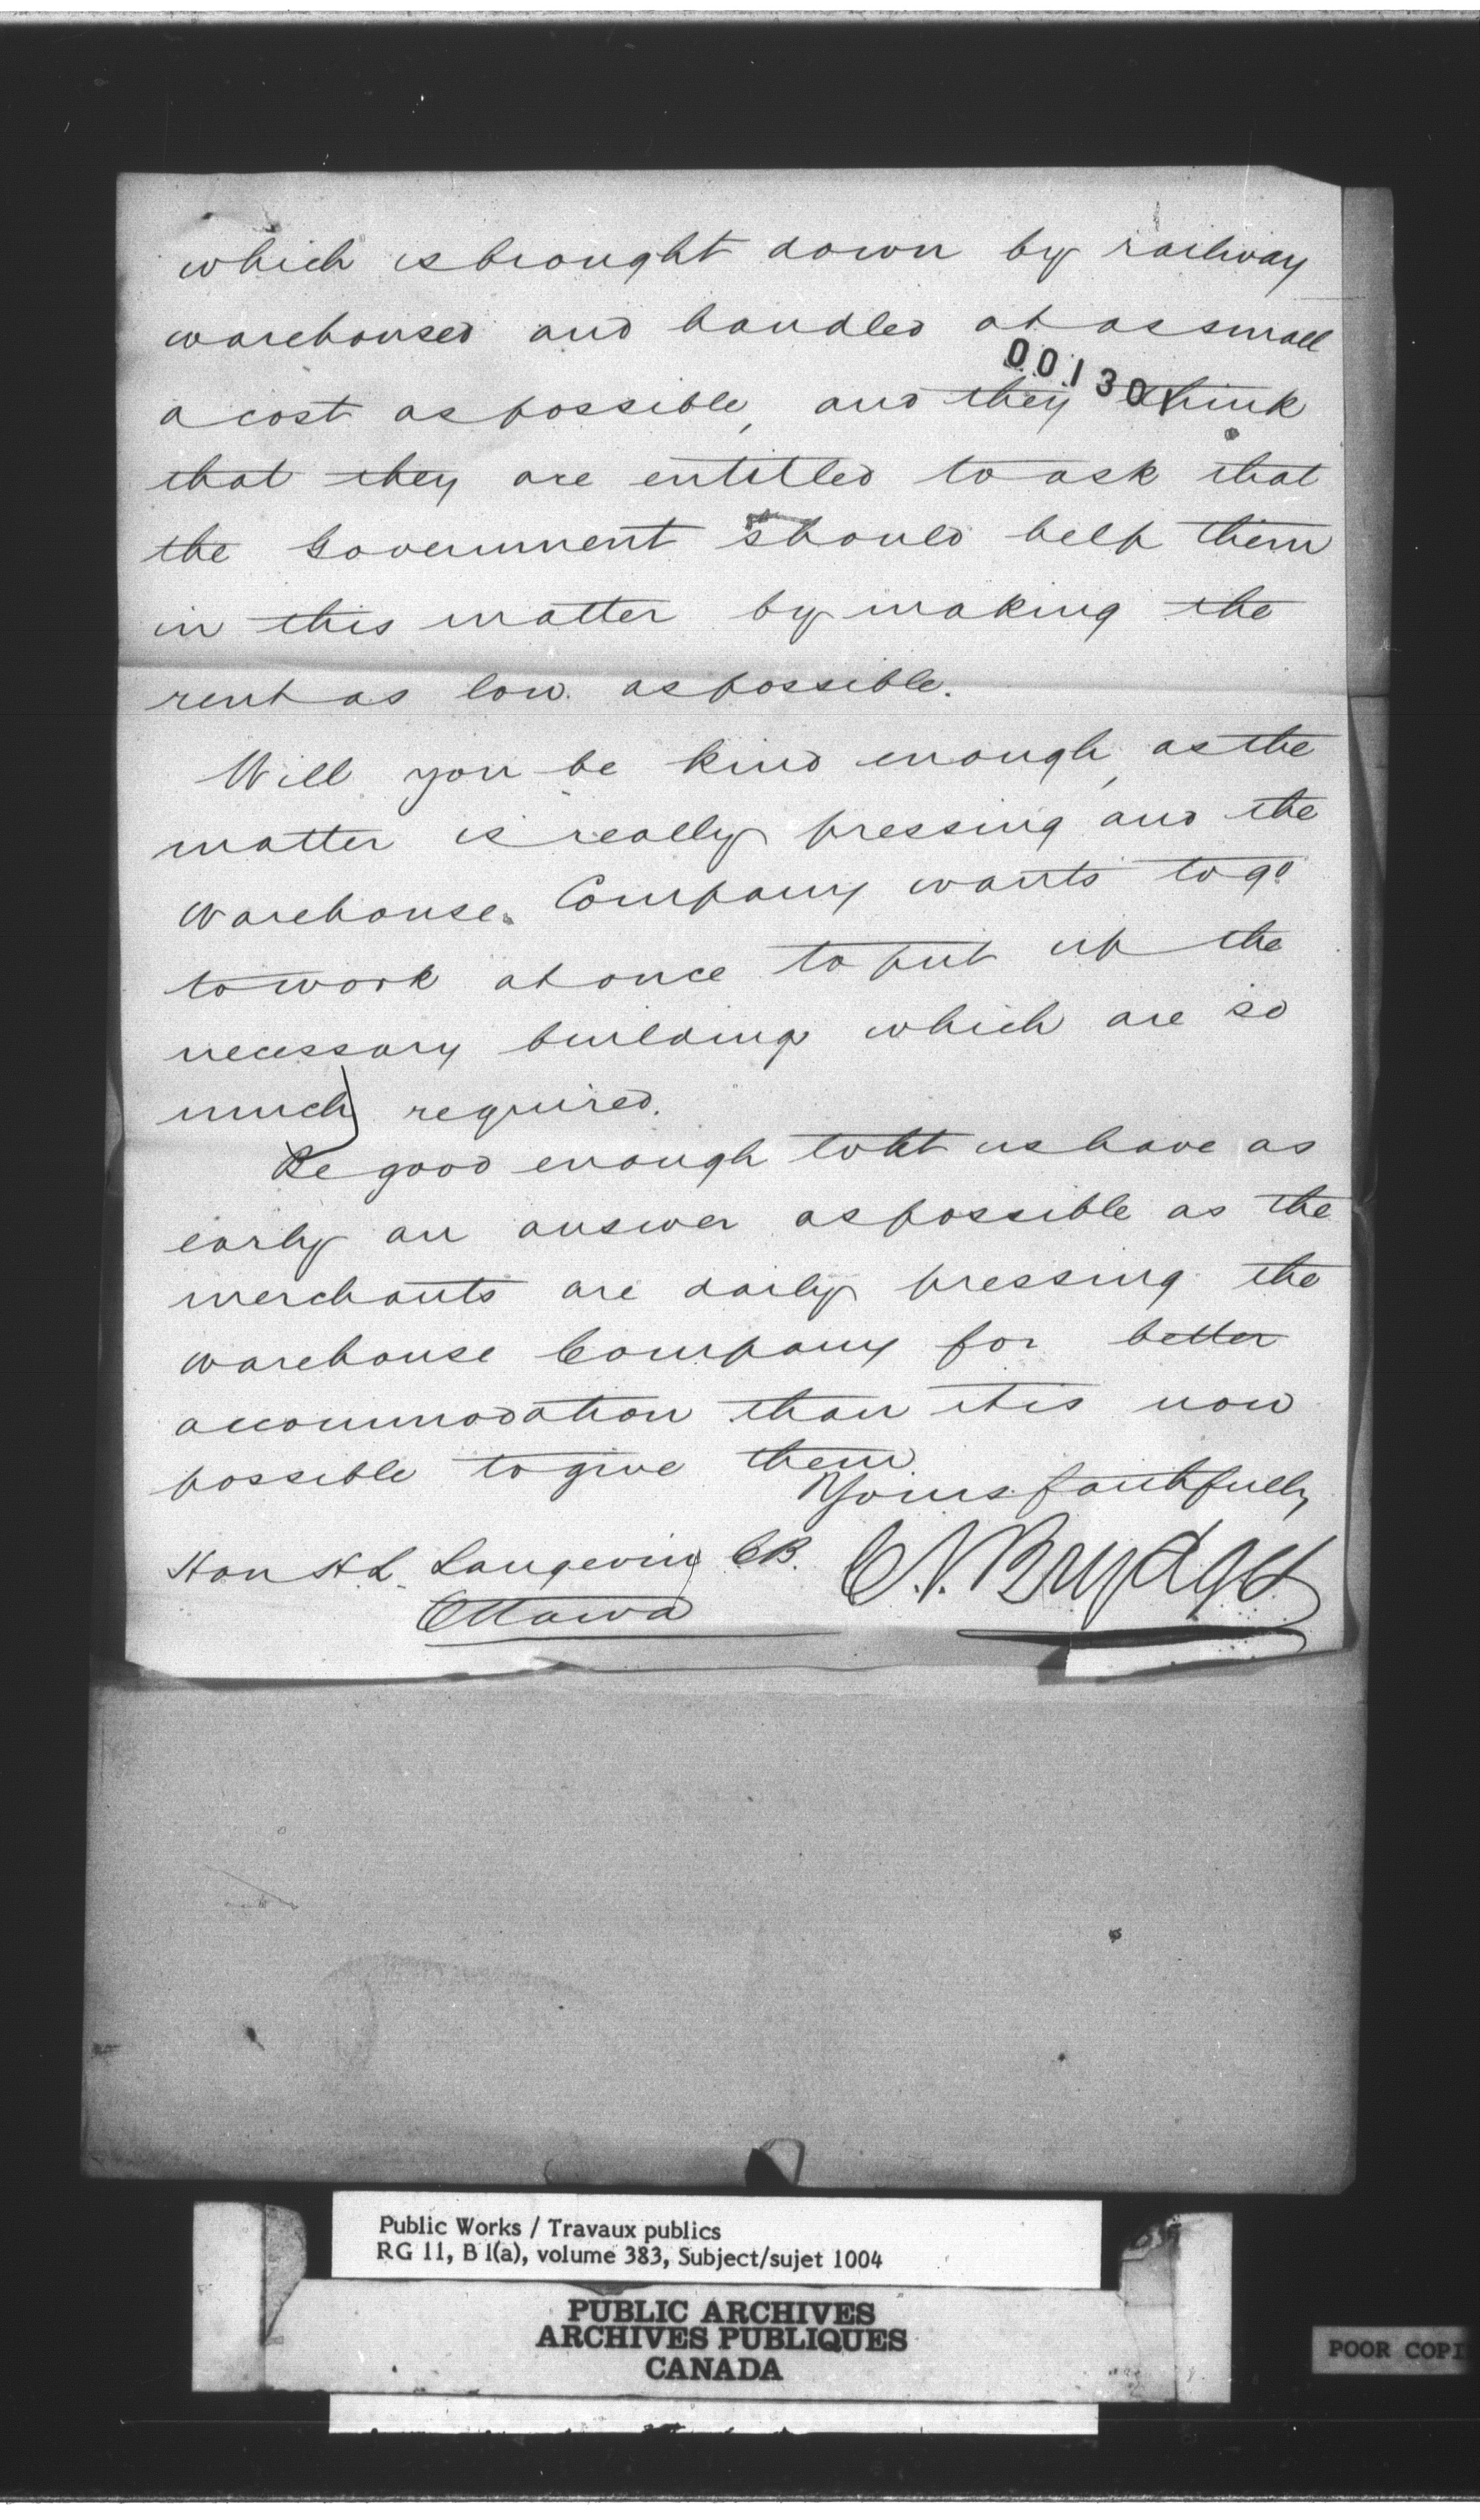 which is brought down by railway
warehoused and handled at as small
00130
a cost as possible, and they think
that they are entitled to ask that
the Government should help them
in this matter by making the
rent as low as possible.
Will you be kind enough, as the
matter is really pressing and the
Warehouse Company wants to go
to work at once to put up the
necessary buildings which are so
much required.
Be good enough to let us have as
early an answer as possible as the
merchants are daily pressing the
warehouse Company for better
accommodation than it is now
possible to give them.
Yours faithfully
Hon H L Langevin CB. C. J. Brydges
Ottawa
Public Works / Travaux publics
RG 11, B 1(a), volume 383, Subject/sujet 1004
PUBLIC ARCHIVES
ARCHIVES PUBLIQUES
CANADA
POOR COPI